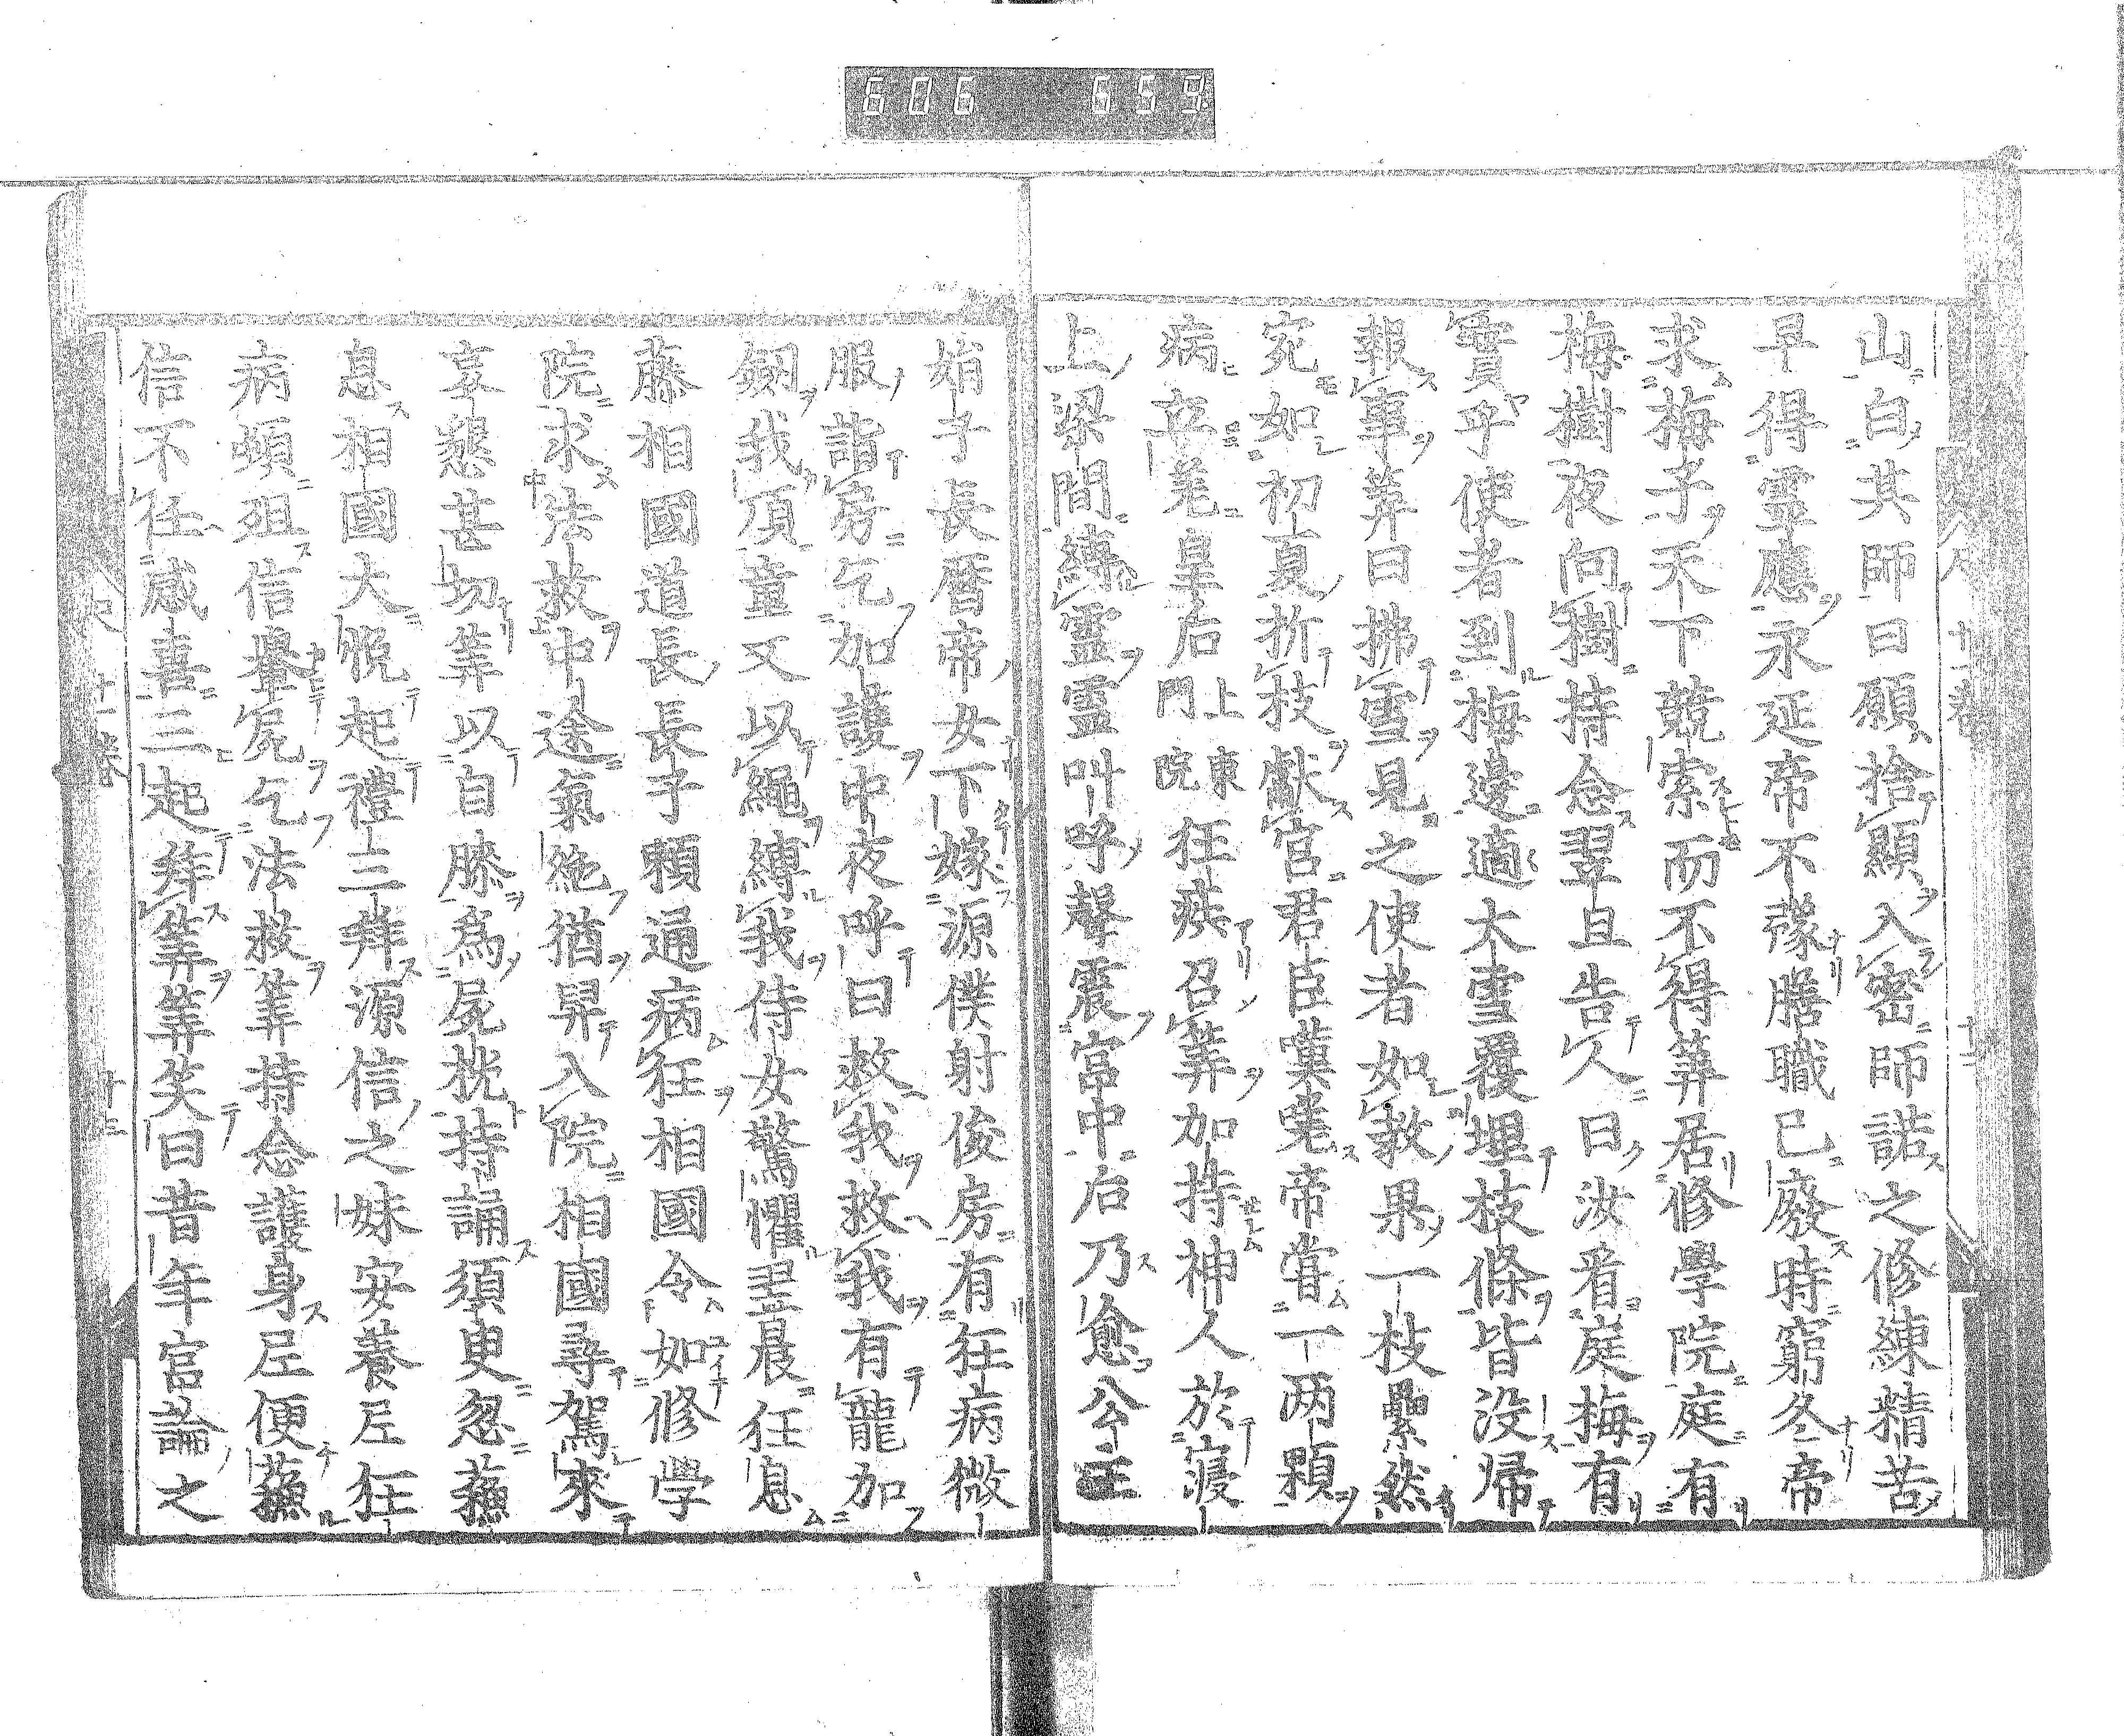 606 659
山白其師曰願捨顯入密師諾之修練精苦
早得靈應永延帝不豫膳職已廢時窮冬帝
求梅子不下競索而不得筭居修學院庭有
梅樹夜向樹持念翌旦告人曰汝看庭梅有
實乎使者到梅邊適大雪覆埋枝條皆没帰
報事筭曰拂雪見之使者如教果一枝纍然
宛如初夏折枝獻官君臣嘆嗟帝甞一两顆
病立差皇后上東門院狂疾召筭加持神人於寢
上梁間縛靈靈叫呼聲震宮中后乃愈公主
娟子長暦帝女下嫁源僕射俊房有狂病微
服詣房乞加護中夜呼曰救我救我有龍加
劒我頂童又以繩縛我侍女驚懼翌晨狂息
藤相國道長長子頼通病狂相國令如修學
院求法救中途氣絶猶舁入院相國尋駕來
哀懇甚切筭以自膝爲屍挽持誦須臾忽蘇
息相國大悦起禮三拜源信之妹安養尼狂
病頓殂信轝屍乞法救筭持念護身尼便蘇
信不任感喜三起拜筭筭笑曰昔年宮論之
十一巻 十二
十一巻 十三